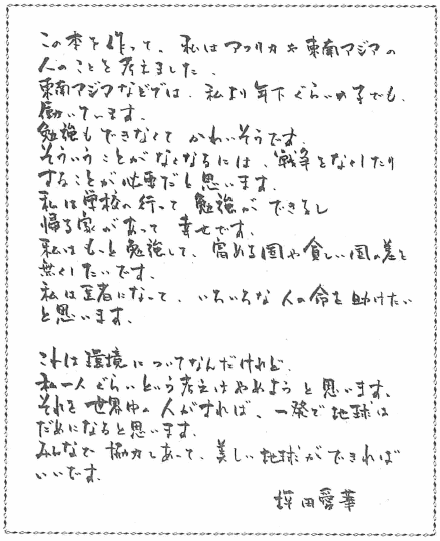 この本を作って、私はアフリカや東南アジアの
人のことを考えました。
東南アジアなどでは、私より年下ぐらいの子でも、
働いています。
勉強もできなくてかわいそうです。
そういうことがなくなるには、戦争をなくしたり
することが必要だと思います。
私は学校へ行って勉強ができるし
帰る家があって幸せです。
私はもっと勉強して、富める国や貧しい国の差を
無くしたいです。
私は医者になって、いろいろな人の命を助けたい
と思います。
これは環境についてなんだけれど、
私一人ぐらいという考えはやめようと思います。
それを世界中の人がすれば、一発で地球は
だめになると思います。
みんなで協力しあって、美しい地球ができれば
いいです。
坪田愛華